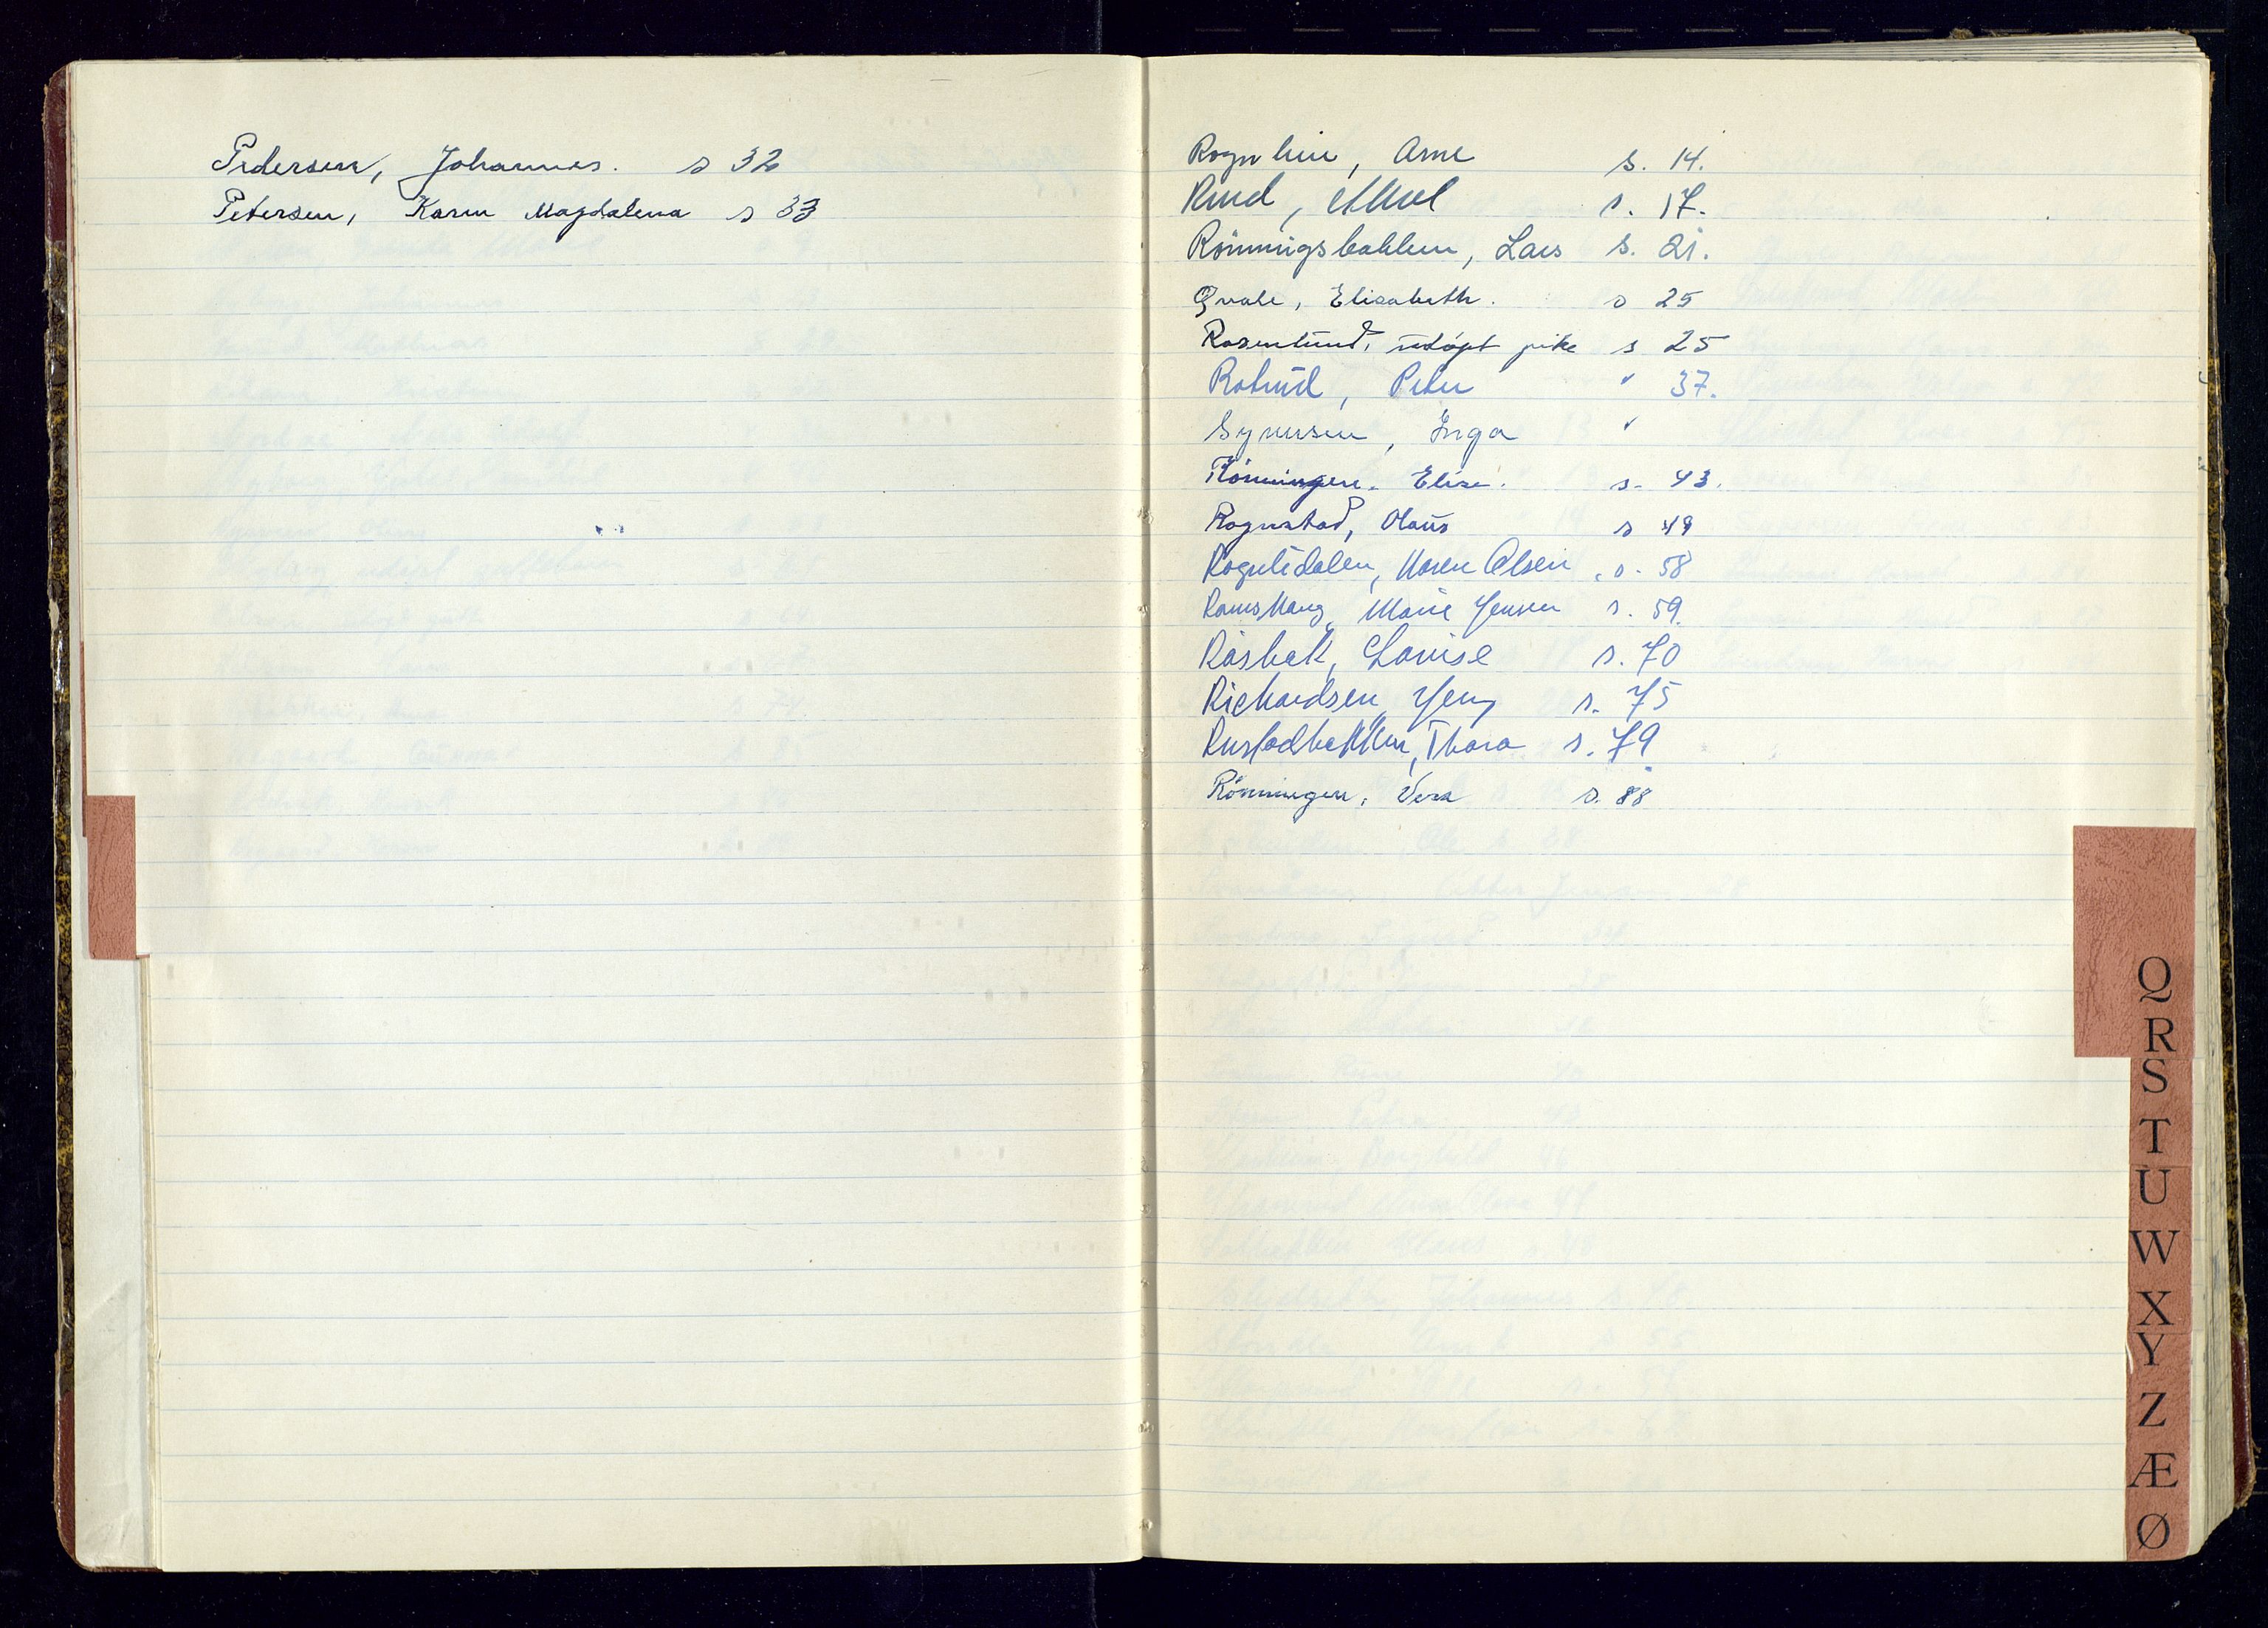 Pedersen, Johannes. s 32
Petersen, Karen Magdalena s 33
Rognlien, Arne s. 14.
Ruud, s. 17.
Rönningsbakken, Lars s. 21.
Qvale, Elisabeth. s 25
Rosenlund, udöpt pike s 25
Peter " 37.
Synnsen, Inga "
Rönningen. Elise. s. 43.
Rognstad, Olaus s 49
Rognlidalen, Maren Olsen s. 58
Ramskaug, Marie Jensen s. 59.
Råsbek, Lovise s. 70
Richardsen, Jeny s. 75
Rustadbakken, Thora s. 79
Rönningen, Vera s. 88
Q
R
S
T
U
W
X
Y
Z
Æ
Ø